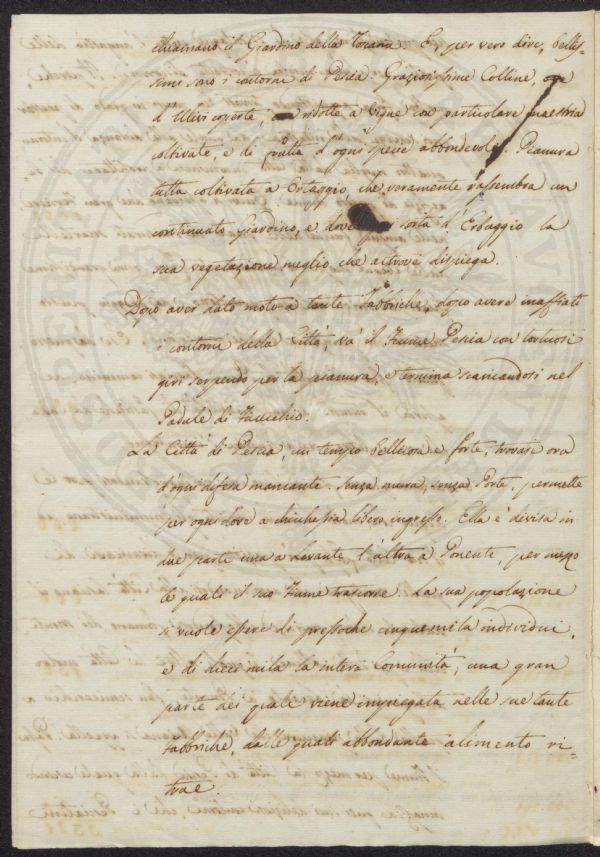 chiamano il Giardino della Toscana. E, per vero dire, bellis-
simi sono i contorni di Pescia. Graziosissime Colline, ove
d'Ulivi coperte, ridotte a vigne con particolare maestria
coltivate, e di frutta d'ogni specie abbondevoli. Pianura
tutta coltivata a Ortaggio che veramente rassembra un
continuato Giardino, e dove sorta d'Erbaggio la
sua vegetazione meglio che altrove dispiega.
Dopo aver dato moto a tante Fabbriche, dopo avere inaffiati
i contorni della Città, và il Fiume Pescia con tortuosi
giri serpendo per la pianura, e termina scaricandosi nel
Padule di Fucecchio.
La Città di Pescia, un tempo bellicosa e forte, trovasi ora
d'ogni difesa mancante. Senza mura, senza Porte, permette
per ogni dove a chichessia libero ingresso. Ella è divisa in
due parte una a Levante l'altra a Ponente, per mezzo
le quali il suo Fiume trascorre. La sua popolazione
si vuole essere di pressoche cinquemila individui,
e di diecimila la intera Comunità, una gran
parte dei quali viene impiegata nelle sue tante
Fabbriche, dalle quali abbondante alimento ri-
trae.